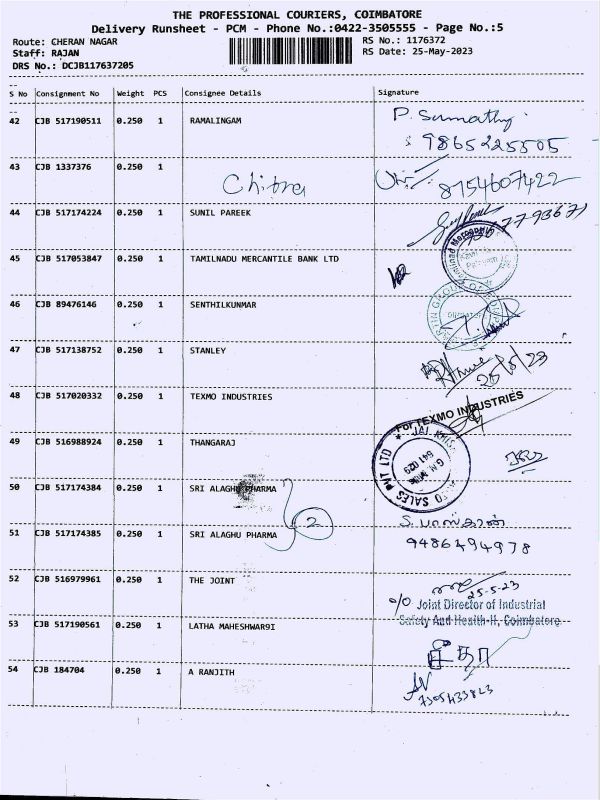 THE PROFESSIONAL COURIERS, COIMBATORE
Delivery Runsheet - PCM - Phone No.:0422-3505555 - Page No.:5
Route: CHERAN NAGAR
RS No.: 1176372
Staff: RAJAN
RS Date: 25-May-2023
DRS No.: DCJB117637205
S No Consignment No Weight PCS Consignee Details Signature
42 CJB 517190511 0.250 1 RAMALINGAM P. Sumathy
9865225505
43 CJB 1337376 0.250 1
Chitra 8754607422
44 CJB 517174224 0.250 1 SUNIL PAREEK
45 CJB 517053847 0.250 1 TAMILNADU MERCANTILE BANK LTD
46 CJB 89476146 0.250 1 SENTHILKUNMAR
47 CJB 517138752 0.250 1 STANLEY
25/5/23
48 CJB 517020332 0.250 1 TEXMO INDUSTRIES
For TEXMO INDUSTRIES
49 CJB 516988924 0.250 1 THANGARAJ
641 029
SALES PVT LTD
50 CJB 517174384 0.250 1 SRI ALAGHU PHARMA
2
51 CJB 517174385 0.250 1 SRI ALAGHU PHARMA
9486494978
52 CJB 516979961 0.250 1 THE JOINT
25-5-23
o/o Joint Director of Industrial
Safety And Health-II, Coimbatore
53 CJB 517190561 0.250 1 LATHA MAHESHWAR9I
கீதா
54 CJB 184704 0.250 1 A RANJITH